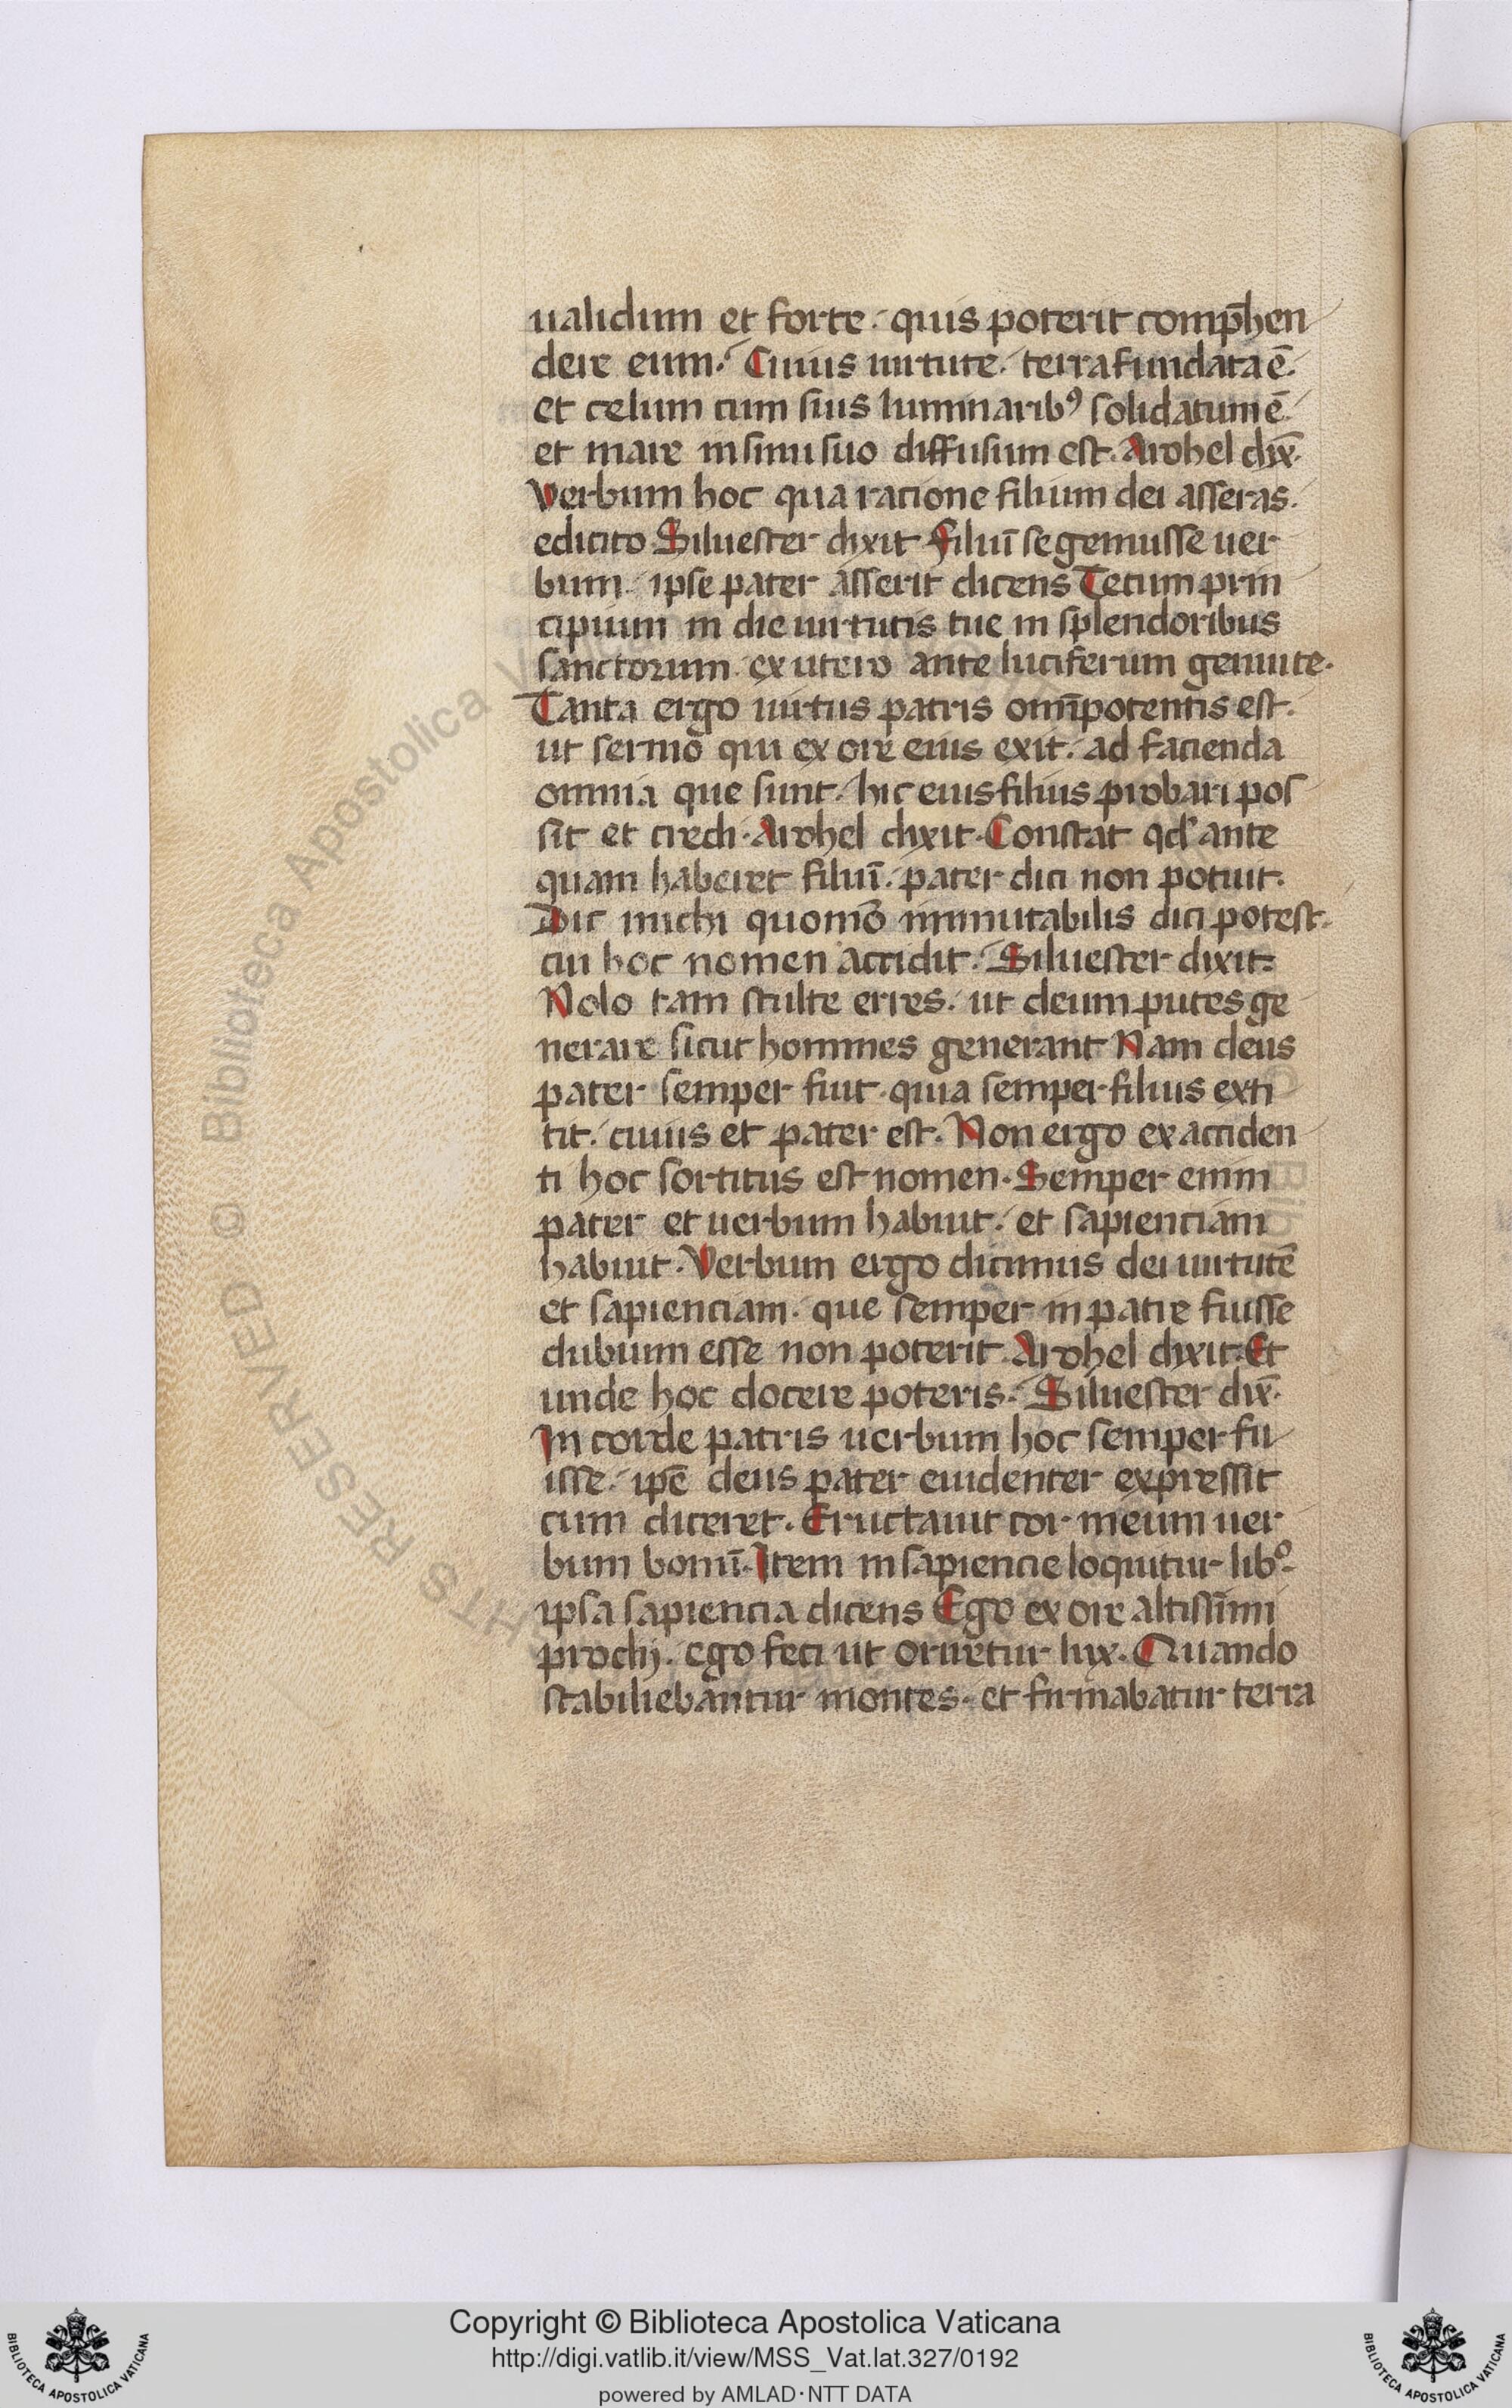 ualidum et forte. quis poterit comp̅hen
dere eum. Cuius uirtute. terra fundata ē.
et celum cum suis luminarib⁹ solidatum ē.
et mare in sinu suo diffusum est. Arohel dix̅.
Verbum hoc qua racione filium dei asseras.
edicito. Siluester dixit. Filiū se genuisse uer
bum. ipse pater asserit dicens Tecum prin
cipium in die uirtutis tue in splendoribus
sanctorum. ex utero ante luciferum genui te.
Tanta ergo uirtus patris om̅ipotentis est.
ut sermo qui ex ore eius exit. ad facienda
omnia que sunt. hic eius filius probari pos
sit et credi. Arohel dixit. Constat qd̕ ante
quam haberet filiū. pater dici non potuit.
Dic michi quomō immutabilis dici potest.
cui hoc nomen accidit. Siluester dixit.
Nolo tam stulte erres. ut deum putes ge
nerare sicut homines generant Nam deus
pater semper fuit. quia semper filius exti
tit. cuius et pater est. Non ergo ex acciden
ti hoc sortitus est nomen. Semper enim
pater et uerbum habuit. et sapienciam
habuit. Verbum ergo dicimus dei uirtutē
et sapienciam. que semper in patre fuisse
dubium esse non poterit. Arohel dixit. Et
unde hoc docere poteris. Siluester dix̅.
In corde patris uerbum hoc semper fu
isse. ip̅e deus pater euidenter expressit
cum diceret. Eructauit cor meum uer
bum bonū. Item in sapiencie loquitur libº.
ipsa sapiencia dicens Ego ex ore altissimi
prodij. ego feci ut oriretur lux. Quando
stabiliebantur montes. et firmabatur terra
RESERVED © Biblioteca Apostolica
Copyright © Biblioteca Apostolica Vaticana
http://digi.vatlib.it/view/MSS_Vat.lat.327/0192
powered by AMLAD·NTT DATA
BIBLIOTECA APOSTOLICA VATICANA
BIBLIOTECA APOSTOLICA VATICANA